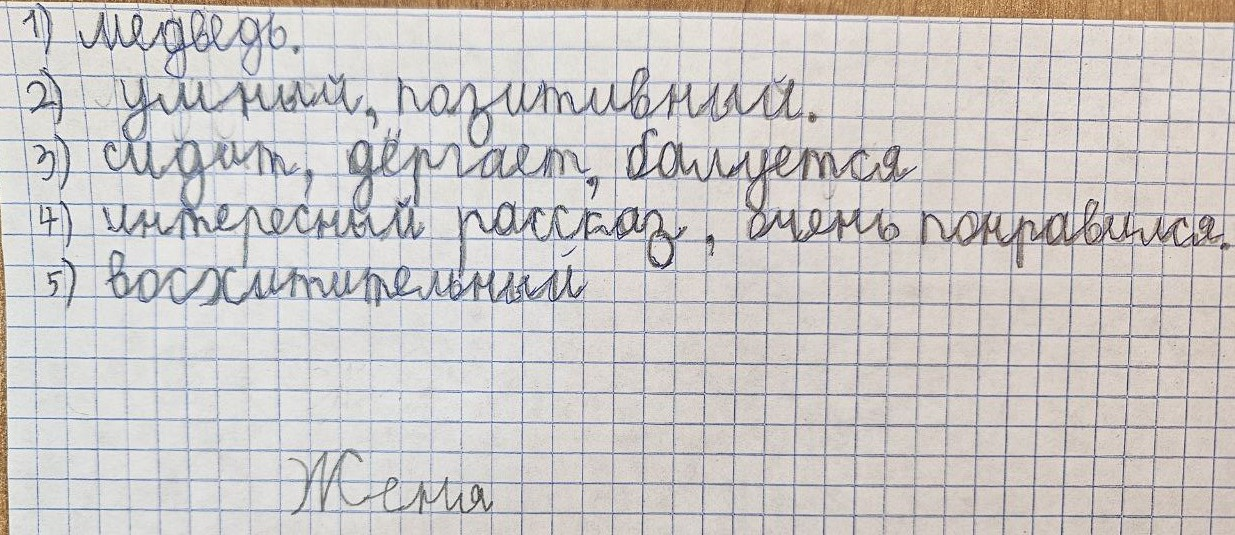 1) медведь.
2) умный, позитивный.
3) сидит, дёргает, балуется
4) интересный рассказ, очень понравился.
5) восхитительный
Женя